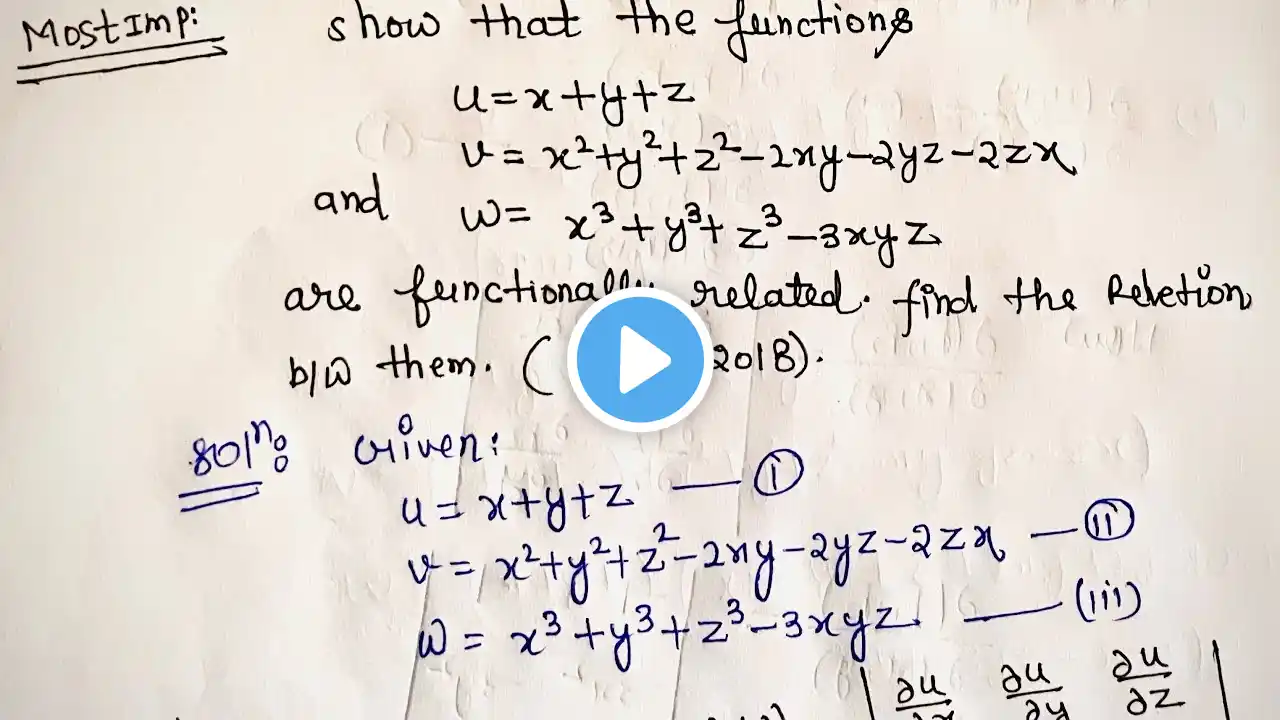 Most Imp: show that the functions
u = x + y + z
v = x² + y² + z² - 2xy - 2yz - 2zx
and w = x³ + y³ + z³ - 3xyz
are functionally related. find the Reletion
b/w them. ( 2018).
Solⁿ: Given:
u = x + y + z — (i)
v = x² + y² + z² - 2xy - 2yz - 2zx — (ii)
w = x³ + y³ + z³ - 3xyz. — (iii)
∂u/∂x ∂u/∂y ∂u/∂z